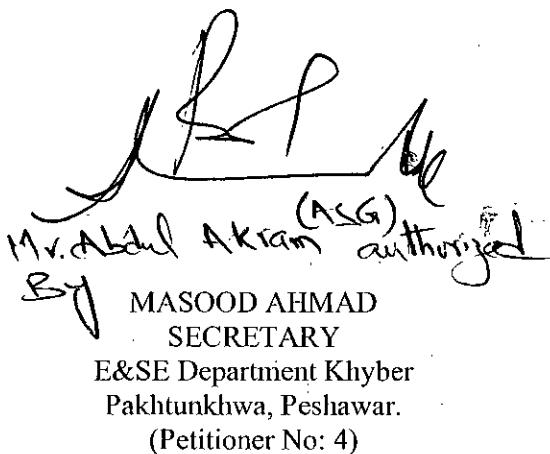 (ASG)
Mr. Abdul Akram authorized
By
MASOOD AHMAD
SECRETARY
E&SE Department Khyber
Pakhtunkhwa, Peshawar.
(Petitioner No: 4)